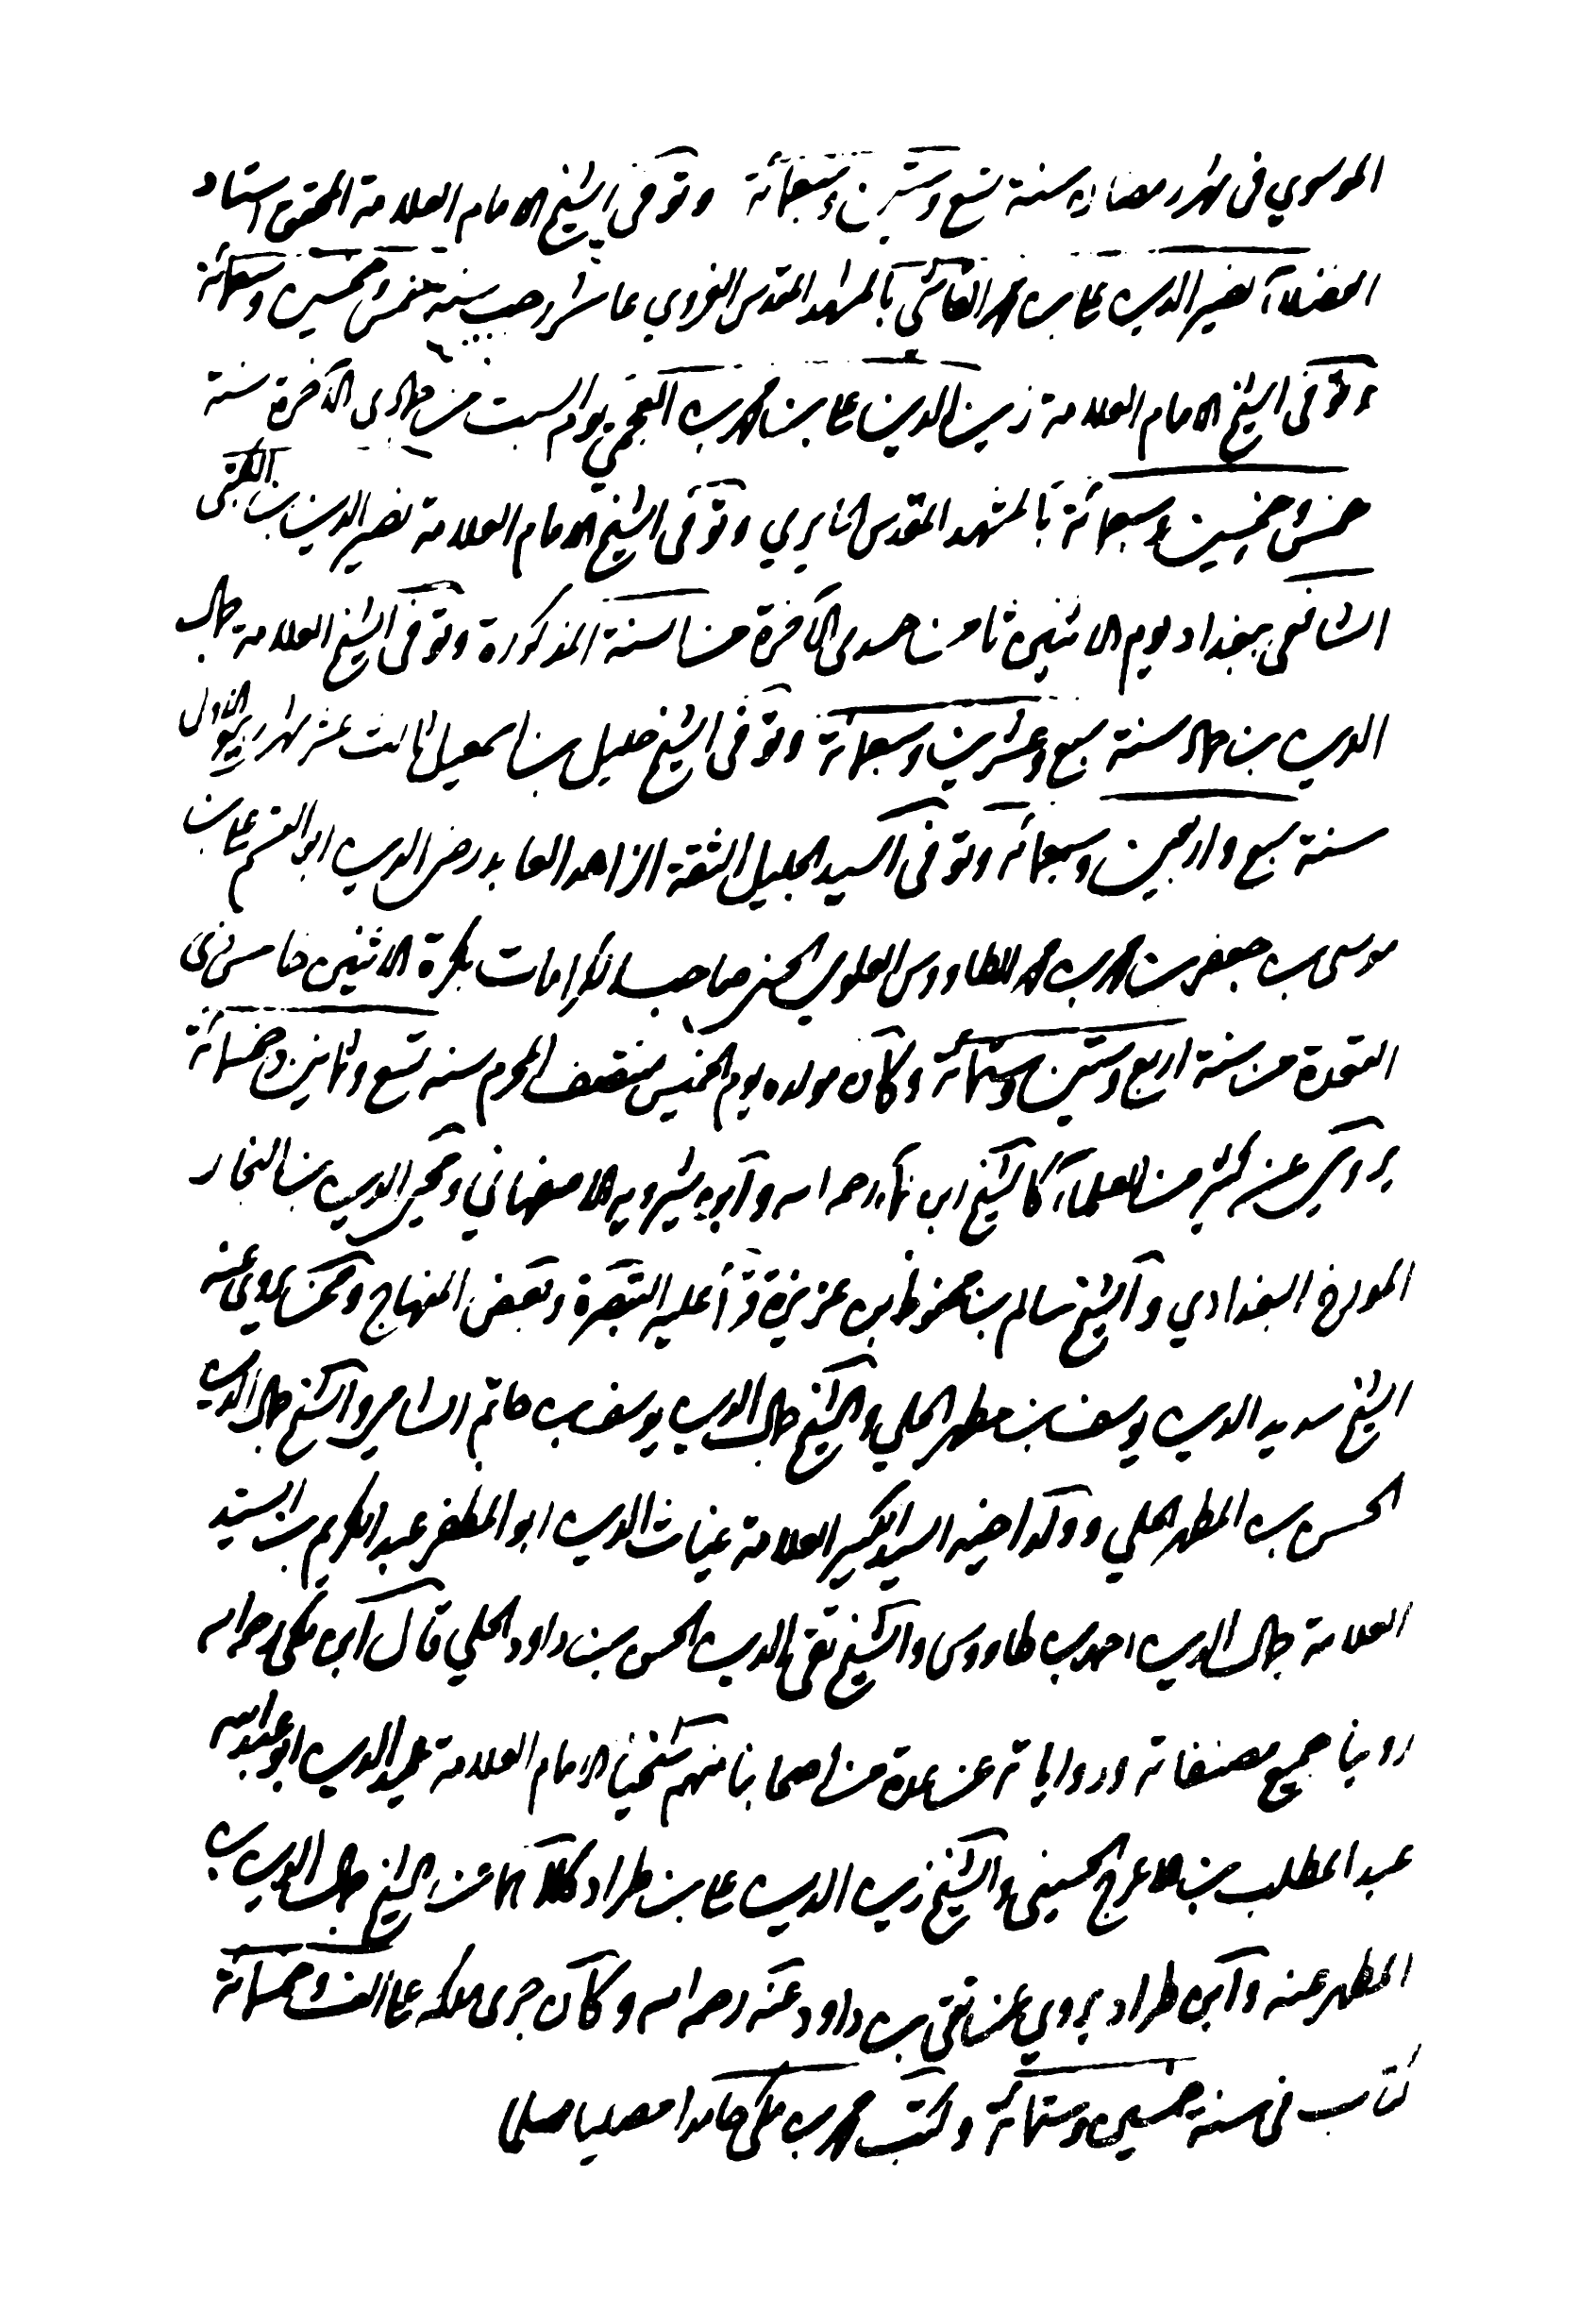 الموسوي في شهر رمضان سنة تسع وستين وسبعمائة وتوفي الشيخ الامام العلامة المحقق استاد
الفضلاء نصير الدين علي بن محمد القاشي بالمشهد المقدس الغروي عاشر رجب سنة خمس وخمسين وسبعمائة
وتوفي الشيخ الامام العلامة زين الدين علي بن محمد بن يوم السبت من جمادى الآخرة سنة
خمس وخمسين وسبعمائة بالمشهد المقدس الحايري وتوفي الشيخ الامام العلامة نصير الدين بن
الشافعي ببغداد يوم الاثنين ثامن جمدى الآخرة من السنة المذكورة وتوفي الشيخ العلامة جمال
الدين بن حماد سنة سبع وعشرين وسبعمائة وتوفي الشيخ خليل بن اسمعيل ثالث عشر شهر ربيع الاول
سنة سبع واربعين وسبعمائة وتوفي السيد الجليل الثقة الزاهد العابد رضي الدين ابو القسم علي بن
موسى بن جعفر بن محمد بن محمد الطاووس العلوي الحسني صاحب الكرامات بكرة الاثنين خامس ذي
القعدة من سنة اربع وستين وستمائة وكان مولده يوم الخميس منتصف المحرم سنه تسع وثمانين وخمسمائة
يروي عن كثير من العلماء كالشيخ ابن نما رحمه الله وابن شيرويه الاصفهاني ومحب الدين بن النجار
المورخ البغدادي والشيخ سالم بن محفوظ بن عزيزة قرأ عليه التبصرة وبعض المنهاج وممن يروي عنه
الشيخ سديد الدين يوسف بن مطهر الحلي والشيخ جمال الدين يوسف بن حاتم الشامي والشيخ جمال الدين
الحسن بن المطهر الحلي وولد اخيه السيد الكبير العلامة غياث الدين ابو المظفر عبد الكريم بن السيد
العلامة جمال الدين احمد بن طاووس والشيخ تقي الدين الحسن بن داود الحلي قال ابن مكي رحمه الله
روينا جميع مصنفاته ورواياته عن عدة من اصحابنا منهم شيخنا الامام العلامة عميد الدين ابو عبد الله
عبد المطلب بن الاعرج الحسيني والشيخ زين الدين علي بن طراد كلاهما عن الشيخ جمال الدين بن
المطهر عنه وابن طراد يروي عن تقي بن داود عنه رحمه الله وكان جرى ملكه على الف وخمسمائة
كتاب في سنة خمسين وستمائة وكتب محمد بن مكي حامدا مصليا مسلما